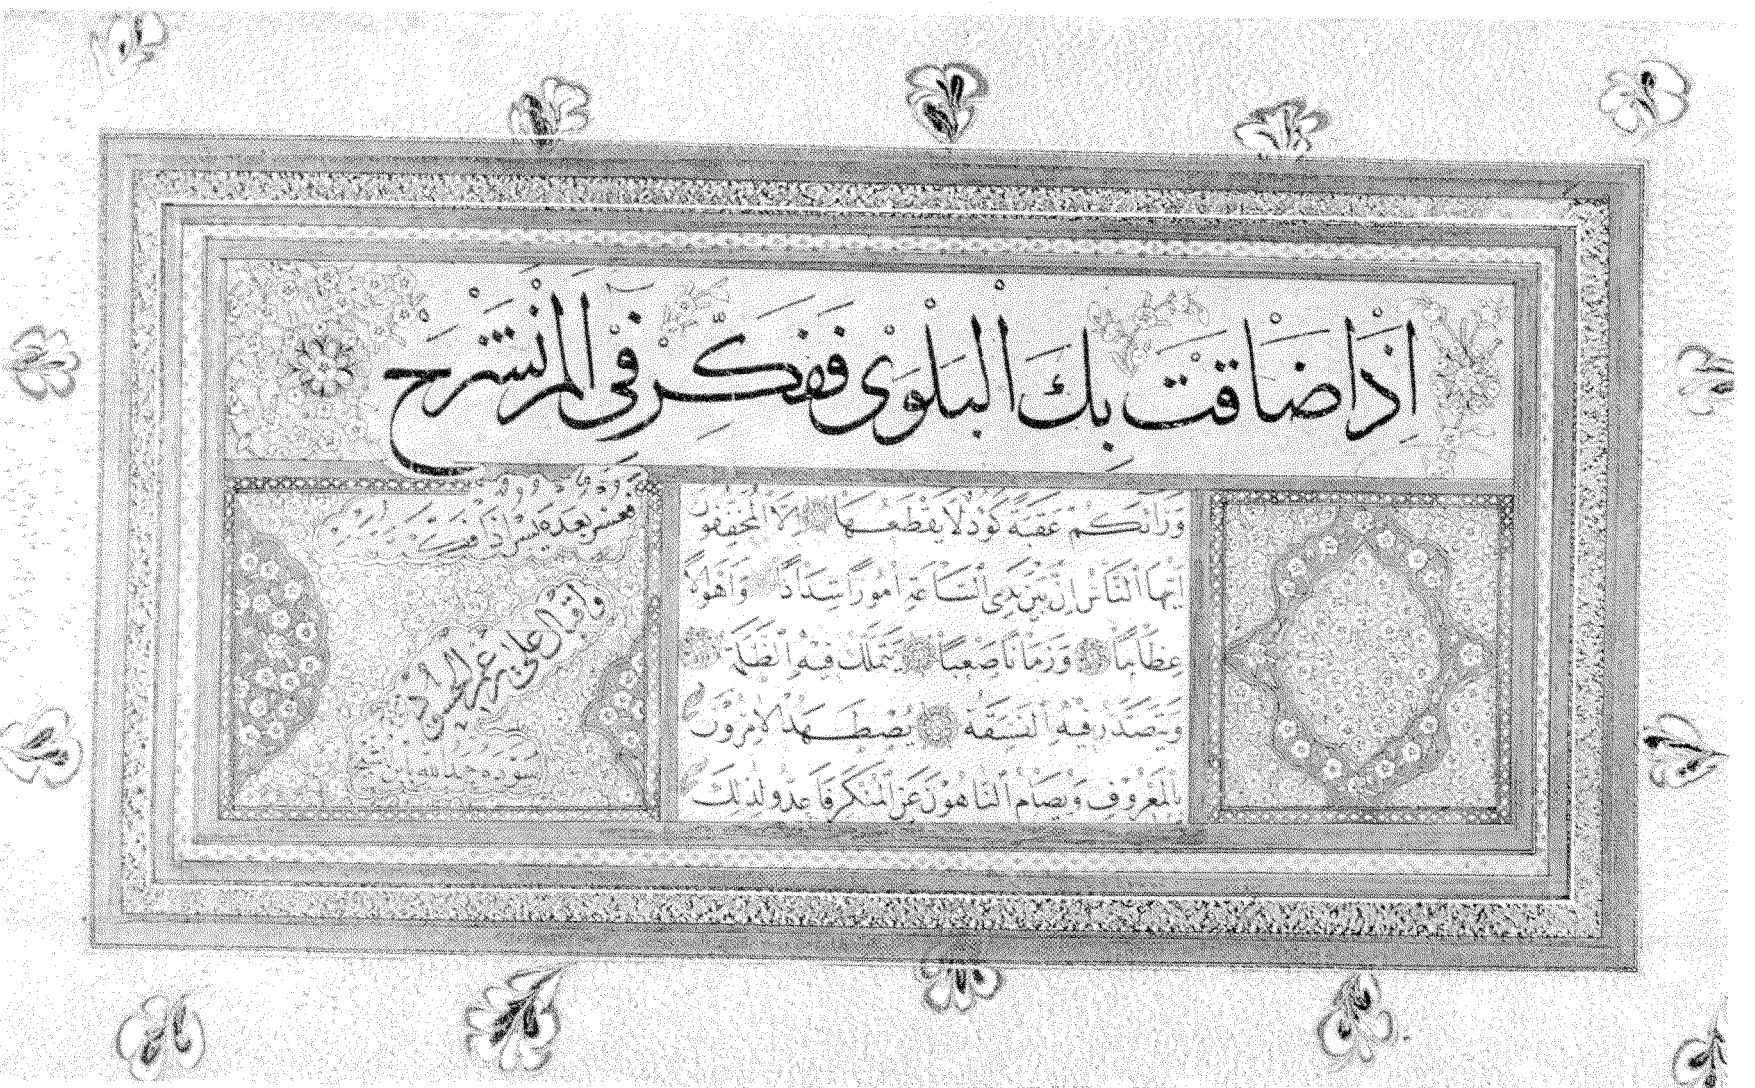 اِذَا ضَاقَتْ بِكَ الْبَلْوٰى فَفَكِّرْ فِى اَلَمْ نَشْرَحْ
وَرَائَكُمْ عَقَبَةً كَؤُدْ لَا يَقْطَعُهَا اِلَّا الْمُخَفِّفُونَ
اَيُّهَا النَّاسُ اِنَّ بَيْنَ يَدَىِ السَّاعَةِ اُمُورًا شِدَادًا وَاَهْوَالًا
عِظَامًا وَزَمَانًا صَعْبًا يَتَمَلَّكُ فِيهِ الظَّلَمَةُ
وَيَتَصَدَّرُ فِيهِ الْفَسَقَةُ يُضْطَهَدُ الْاٰمِرُونَ
بِالْمَعْرُوفِ وَيُضَامُ النَّاهُونَ عَنِ الْمُنْكَرِ فَاَعِدُّوا لِذٰلِكَ
فعسر بعده يسر اذا
سوده حمد الله ابن الشيخ